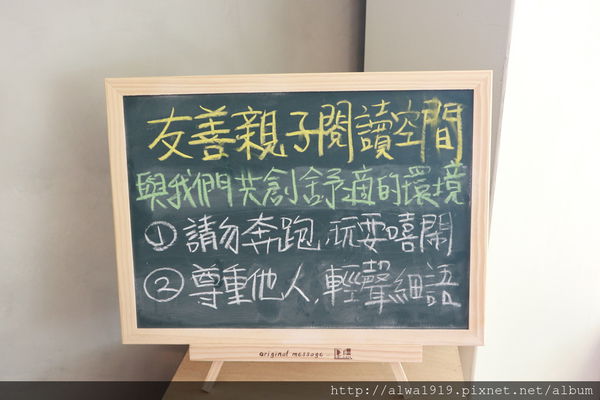 友善親子閱讀空間
與我們共創舒適的環境
①請勿奔跑,玩耍嘻鬧
②尊重他人,輕聲細語
original message
http://alwa1919.pixnet.net/album